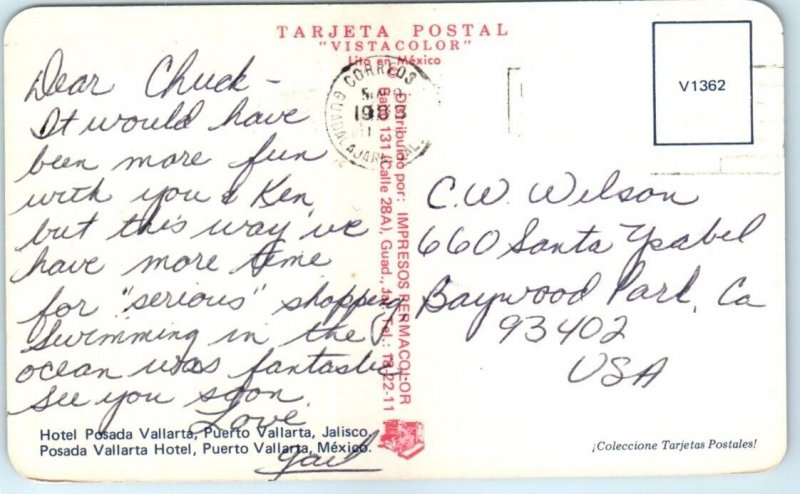 TARJETA POSTAL
"VISTACOLOR"
Lito en México
V1362
CORREOS
GUADALAJARA, JAL.
Dear Chuck -
It would have
been more fun
with you & Ken,
but this way I've
have more time
for "serious" shopping.
Swimming in the
ocean was fantastic
See you soon.
Love
Gail
Distribuido por: IMPRESOS PERMACOLOR
131 (Calle 28A), Guad., Jal. Tel.: 22-11
C.W. Wilson
660 Santa Ysabel
Baywood Park, Ca
93402
USA
Hotel Posada Vallarta, Puerto Vallarta, Jalisco.
Posada Vallarta Hotel, Puerto Vallarta, México.
¡Coleccione Tarjetas Postales!